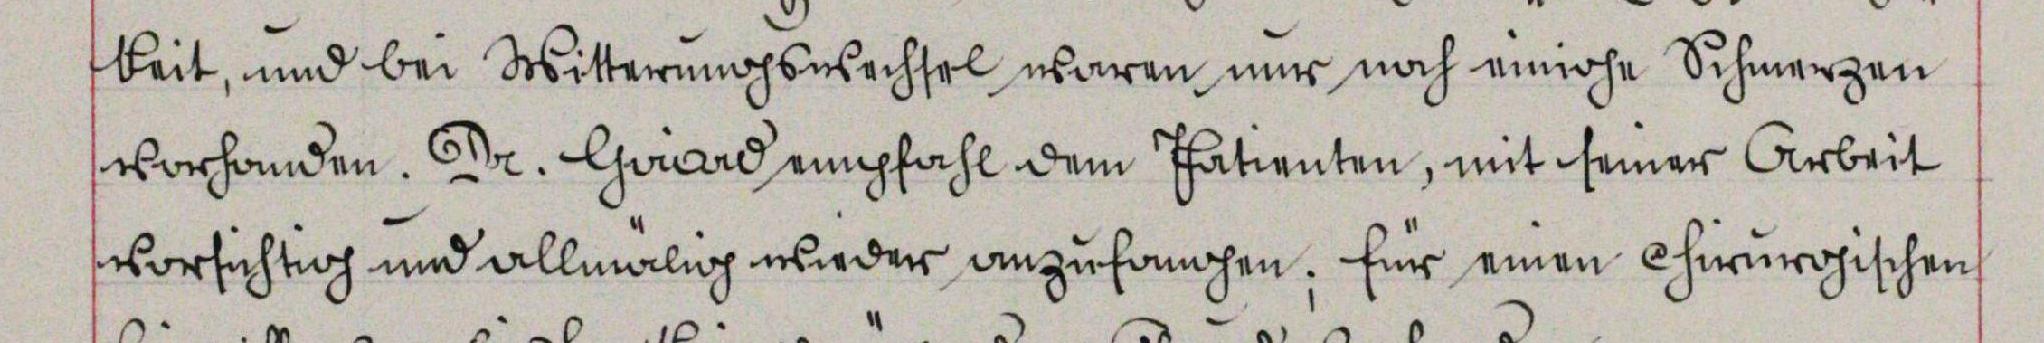 keit, und bei Witterungswechsel waren nur noch einige Schmerzen
vorhanden. Dr. empfahl dem Patienten, mit seiner Arbeit
vorsichtig und allmälig wieder anzufangen; für einen chirurgischen